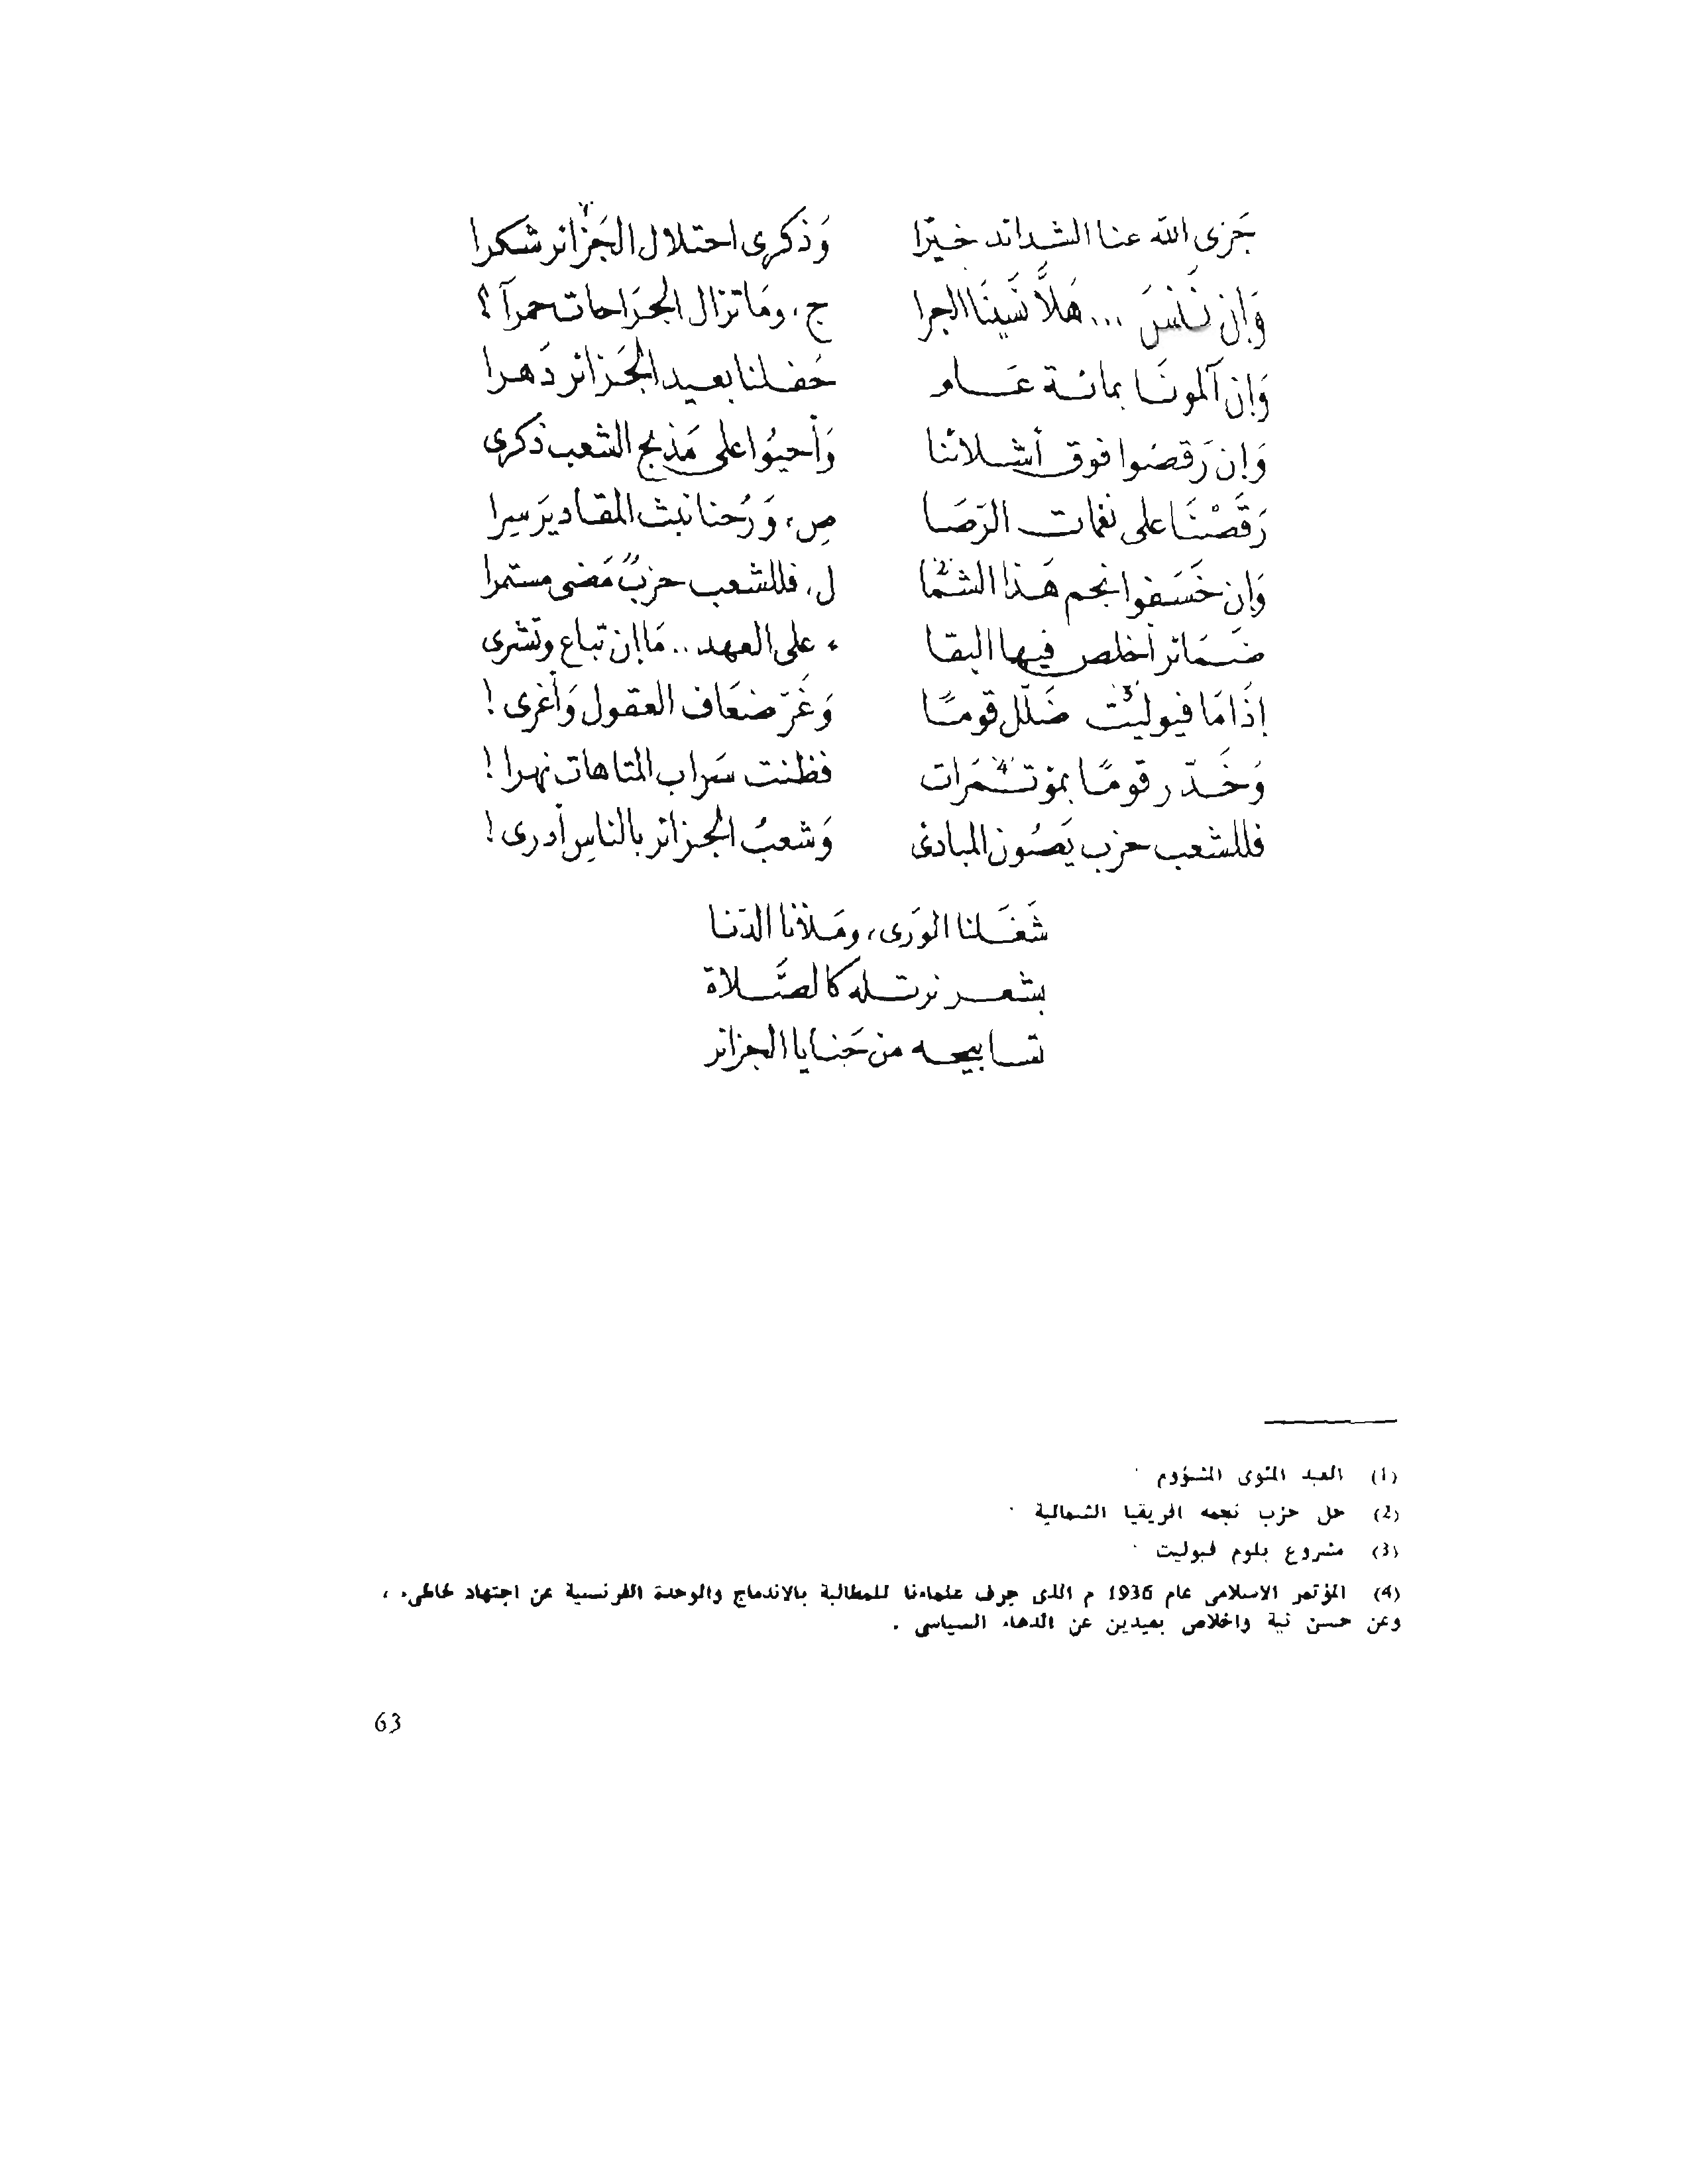 جَزى الله عنا الشدائد خيرًا وَذكرى احتلال الجَزائر شكرا
وَإن نَنسَ ... هَلاَّ نَسِينَا الجرا ح، ومَا تزال الجرَاحات حمرآ ؟
وَإن آلمونَا بمائة عَام حَفلنا بعيد الجَزائر دَهرا
وَإن رَقصَوا فوق أشلائنا وَأحيُوا على مَذبح الشعب ذكرى
رَقَصْنَا على نغمات الرَصَا صِ، وَرُحنا نبث المقاديرَ سِرا
وَإن خَسَفوا نجم هَذا الشمَا (2) ل، فللشعب حزبٌ مَضى مستمرا
ضَمَائر أخلص فيها البقا ء على العهد .. مَا إن تباع وتشرى
إذَا مَا فيوليت (3) ضَلّل قومًا وَغَرّ ضعَاف العقول وَأغرى !
وَخَدّر قومًا بمؤتمَرات (4) فظنت سَراب المتاهات نهرا !
فللشعب حزب يَصُون المبادئ وَشعبُ الجزائر بالناسِ أدرى !
شَغَلنا الورَى، ومَلأنا الدّنا
بشعر نرتله كالصَّلاة
تسابيحه من حَنايا الجزائر
(1) العيد المئوى المشؤوم .
(2) حل حزب نجمه افريقيا الشمالية .
(3) مشروع بلوم فيوليت .
(4) المؤتمر الاسلامى عام 1936 م الذى جرف علماءنا للمطالبة بالاندماج والوحدة الفرنسية عن اجتهاد خاطىء ،
وعن حسن نية واخلاص بعيدين عن الدهاء السياسى .
63